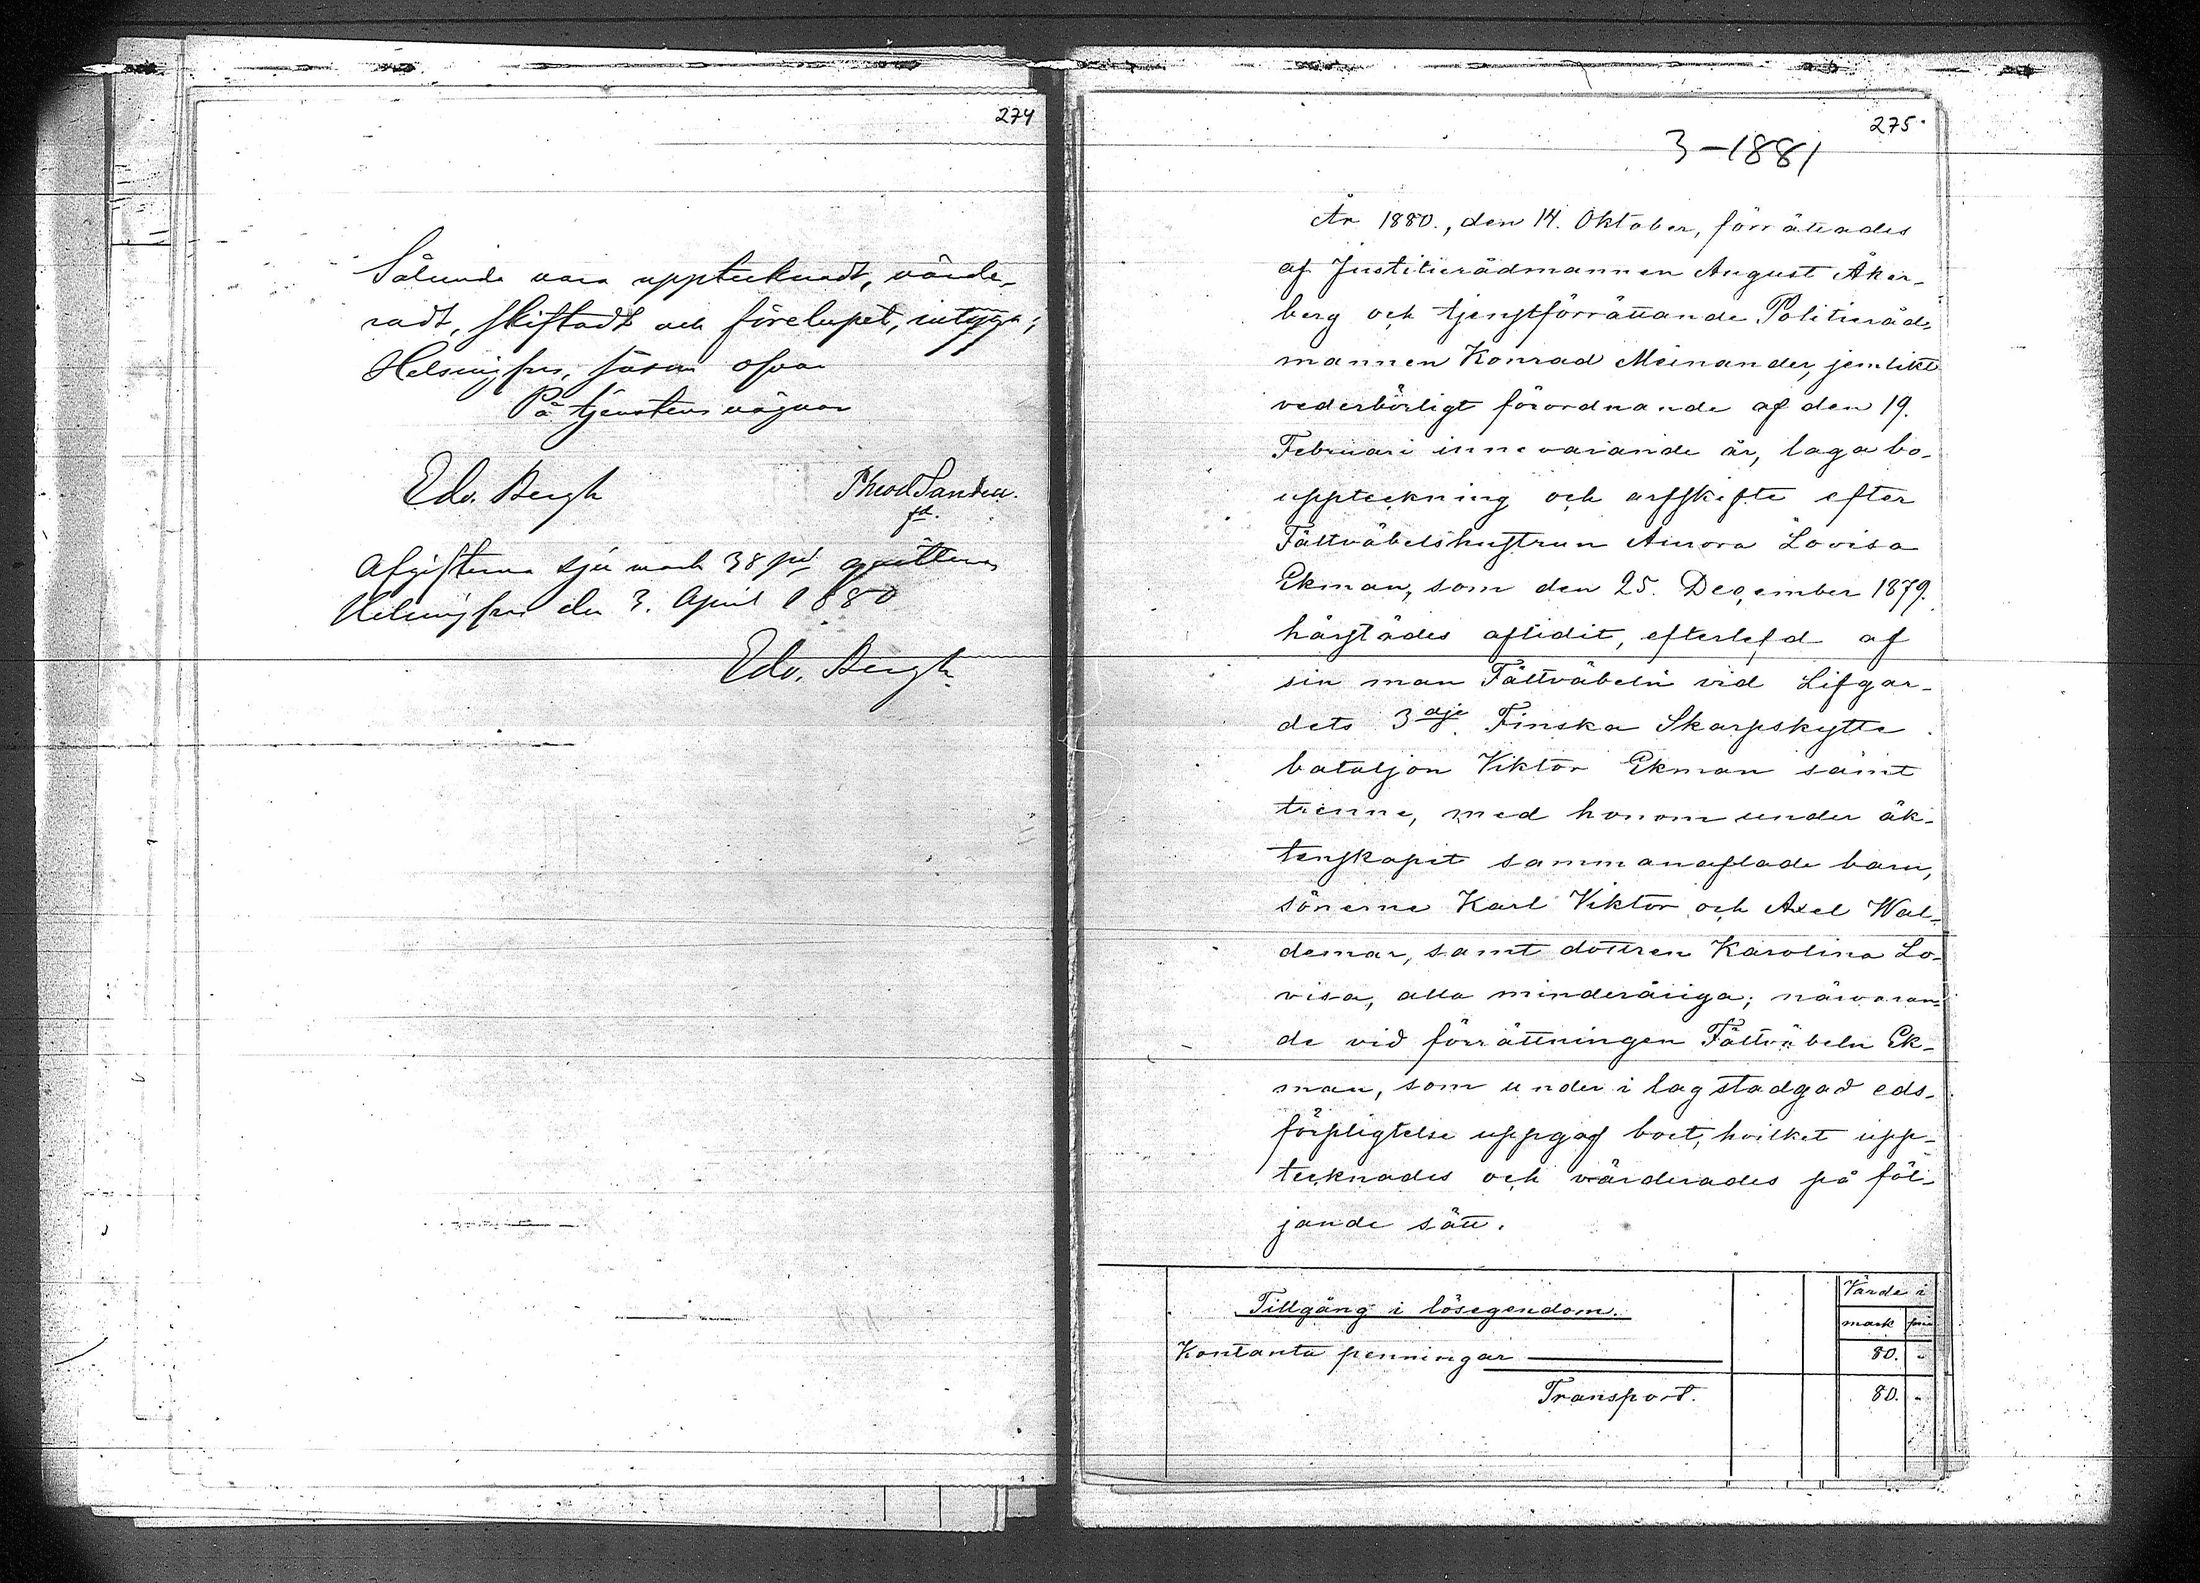 274
Sålunda vara upptecknadt, värde-
radt, skiftadt och förelupet, intyga;
Helsingfors, såsom ofvan
På tjenstens vägnar
Edv. Bergh
Theod Sandell.
fd.
Afgifterna sju mark 38 pi qvitteras
Helsingfors den 3. April 1880
Edv. Bergh.
275.
3-1881
År 1880., den 14. Oktober, förrättades
af Justitierådmannen August Åker-
berg och tjenstförrättande Politieråd-
mannen Konrad Meinander, jemlikt
vederbörligt förordnande af den 19.
Februari innevarande år, laga bo-
uppteckning och arfskifte efter
Fältväbelshustrun Aurora Lovisa
Ekman, som den 25. December 1879.
härstädes aflidit, efterlefd af
sin man Fältväbeln vid Lifgar-
dets 3dje Finska Skarpskytte
bataljon Viktor Ekman samt
trenne, med honom under äk-
tenskapet sammanaflade barn,
sönerne Karl Viktor och Axel Wal-
demar, samt dottren Karolina Lo-
visa, alla minderåriga; närvaran-
de vid förrättningen Fältväbeln Ek-
man, som under i lag stadgad eds-
förpligtelse uppgaf boet, hvilket upp-
tecknades och värderades på föl-
jande sätt.
Värde i
Tillgång i lösegendom.
mark pni
Kontanta penningar 80. -
Transport. 80. -